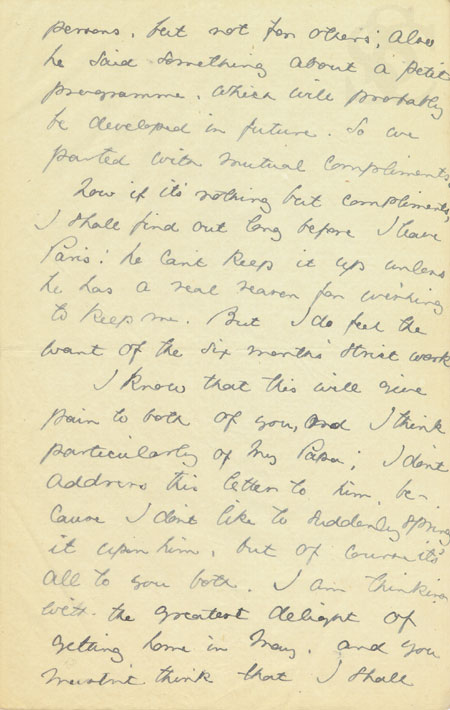 persons, but not for others; also
he said something about a petit
programme, which will probably
be developed in future. So we
parted with mutual compliments.
Now if it's nothing but compliments,
I shall find out long before I leave
Paris: he can't keep it up unless
he has a real reason for wishing
to keep me. But I do feel the
want of the six months strict work
I know that this will give
pain to both of you, and I think
particularly of my Papa; I don't
address this letter to him, be-
cause I don't like to suddenly spring
it upon him, but of course it's
all to you both. I am thinking
with the greatest delight of
getting home in May, and you
mustn't think that I shall